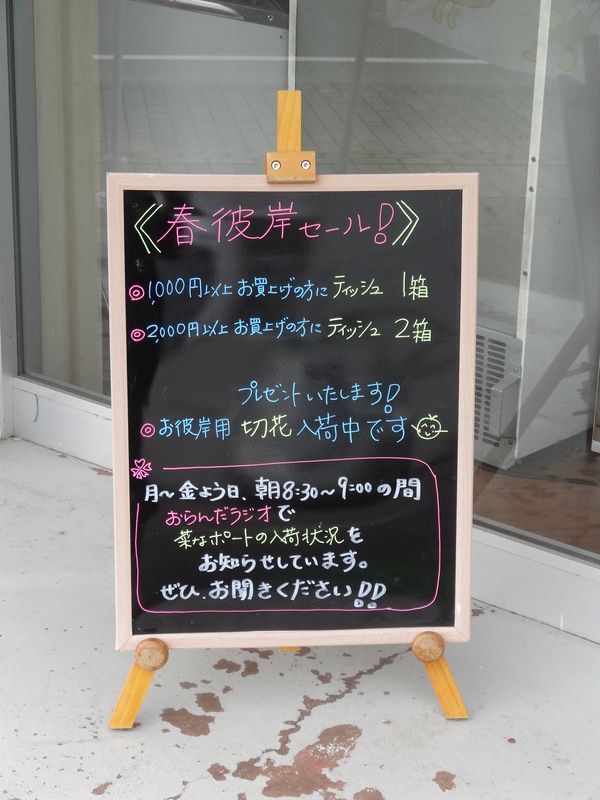 《春彼岸セール!》
◎1,000円以上お買上げの方にティッシュ 1箱
◎2,000円以上お買上げの方にティッシュ 2箱
プレゼントいたします!
◎お彼岸用 切花入荷中です
月〜金よう日、朝8:30〜9:00の間
おらんだラジオで
菜なポートの入荷状況を
お知らせしています。
ぜひ、お聞きください!!